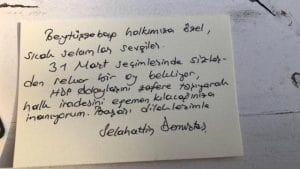 Beytüşşebap halkımıza özel,
sıcak selamlar sevgiler.
31 Mart seçimlerinde sizler-
den rekor bir oy bekliyor,
HDP adaylarını zafere taşıyarak
halk iradesini egemen kılacağınıza
inanıyorum. Başarı dileklerimle
Selahattin Demirtaş